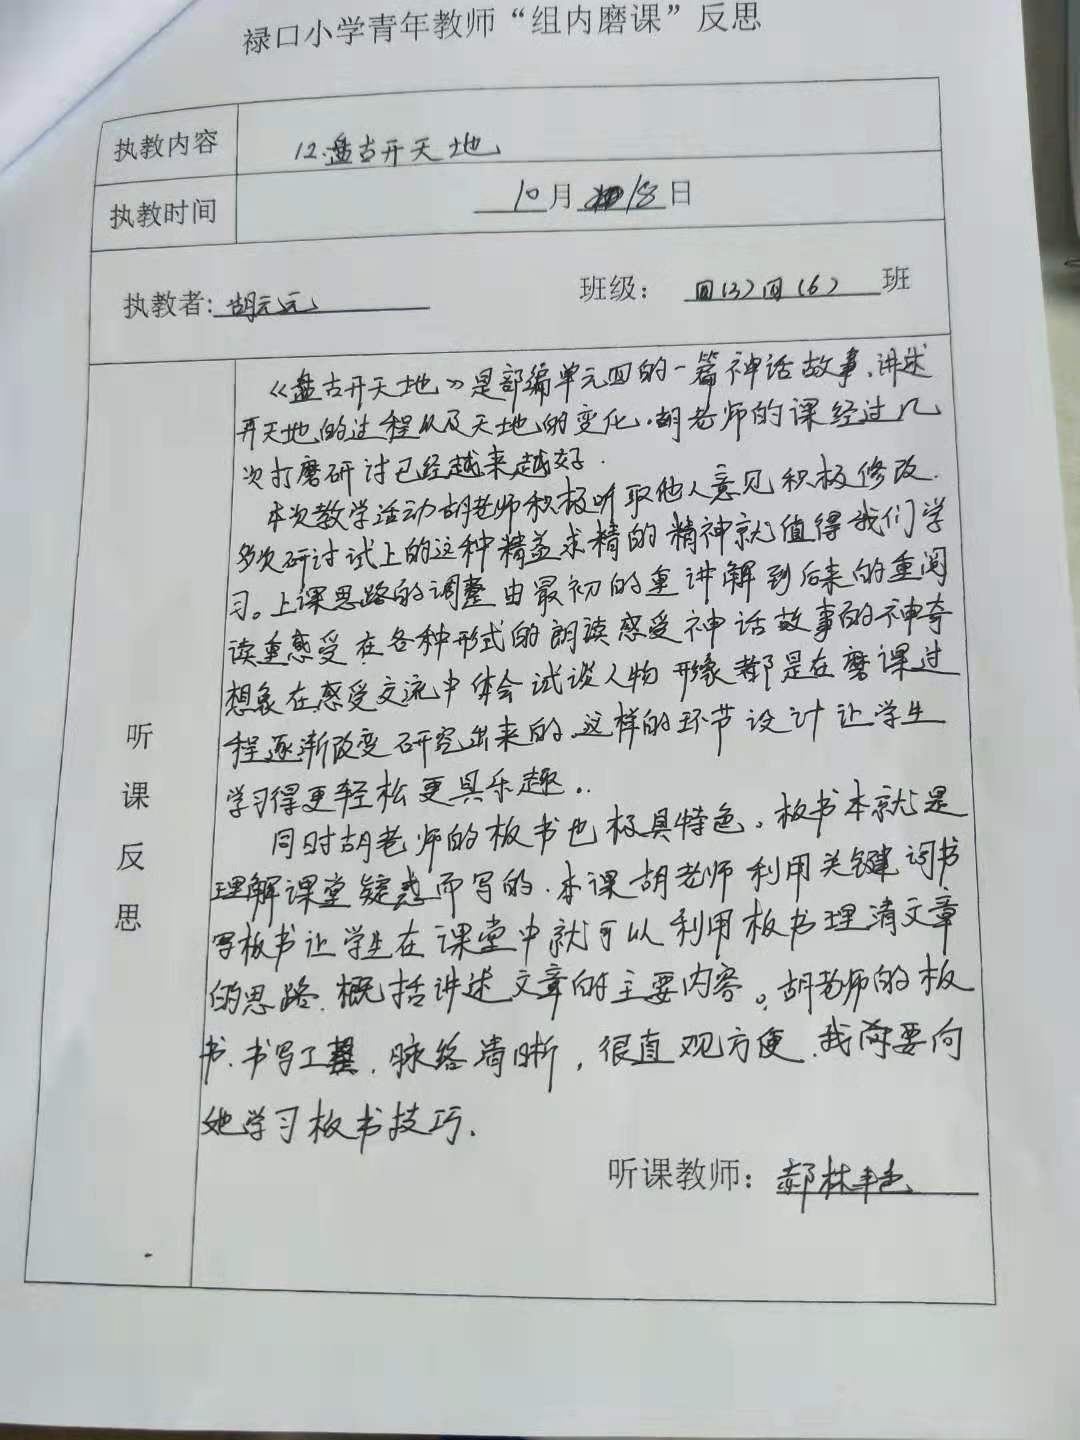 禄口小学青年教师“组内磨课”反思
执教内容 12.盘古开天地
执教时间 10月18日
执教者:胡元元 班级: 四(3)四(6)班
听课反思
《盘古开天地》是部编单元四的一篇神话故事.讲述
开天地的过程以及天地的变化.胡老师的课经过几
次打磨研讨已经越来越好.
本次教学活动胡老师积极听取他人意见积极修改.
多次研讨试上的这种精益求精的精神就值得我们学
习。上课思路的调整由最初的重讲解到后来的重阅
读重感受在各种形式的朗读感受神话故事的神奇
想象在感受交流中体会试谈人物形象都是在磨课过
程逐渐改变研究出来的.这样的环节设计让学生
学习得更轻松更具乐趣..
同时胡老师的板书也极具特色。板书本就是
理解课堂疑惑而写的.本课胡老师利用关键词书
写板书让学生在课堂中就可以利用板书理清文章
的思路.概括讲述文章的主要内容。胡老师的板
书.书写工整.脉络清晰,很直观方便.我需要向
她学习板书技巧.
听课教师:郝林艳